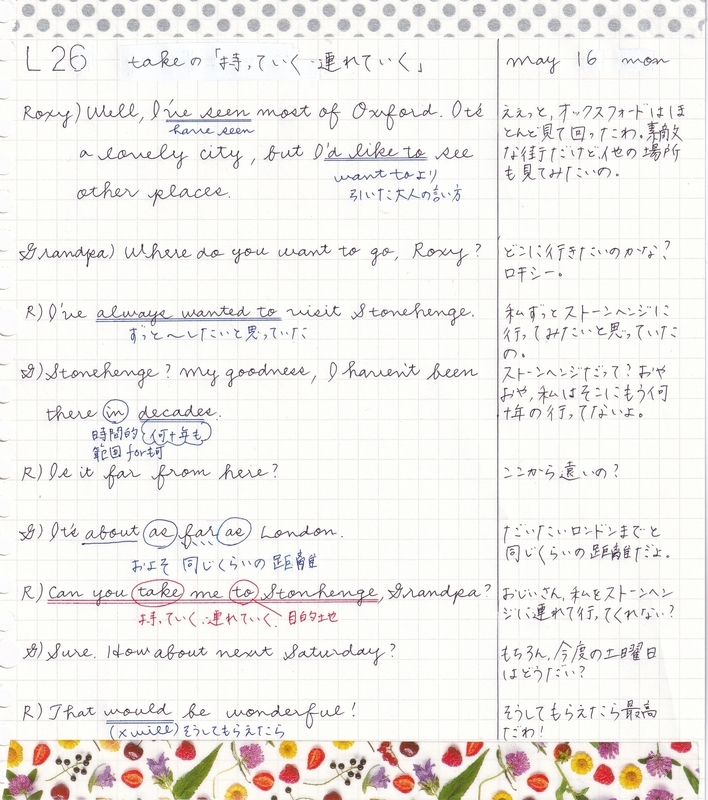 L26 takeの「持っていく・連れていく」 may 16 mon
Roxy) Well, I've seen most of Oxford. It's
have seen
a lovely city, but I'd like to see
want toより
other places.
引いた大人の言い方
ええっと、オックスフォードはほ
とんど見て回ったわ。素敵
な街だけど、他の場所
も見てみたいの。
Grandpa) Where do you want to go, Roxy?
どこに行きたいのかな?
ロキシー。
R) I've always wanted to visit Stonehenge.
ずっと〜したいと思っていた
私ずっとストーンヘンジに
行ってみたいと思っていた
の。
G) Stonehenge? My goodness, I haven't been
there in decades.
時間的 何十年も
範囲 forも可
ストーンヘンジだって?おや
おや、私はそこにもう何
十年の行ってないよ。
R) Is it far from here?
ここから遠いの?
G) It's about as far as London.
およそ 同じくらいの距離
だいたいロンドンまでと
同じくらいの距離だよ。
R) Can you take me to Stonhenge, Grandpa?
持っていく・連れていく 目的地
おじいさん、私をストーンヘン
ジに連れて行ってくれない?
G) Sure. How about next Saturday?
もちろん、今度の土曜日
はどうだい?
R) That would be wonderful!
(×will) そうしてもらえたら
そうしてもらえたら最高
だわ!